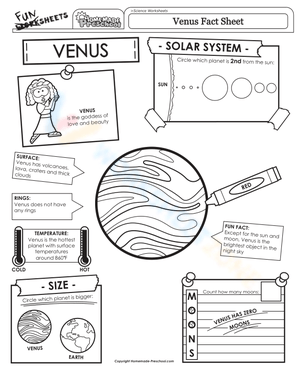 FUN
WORKSHEETS
HOMEMADE
PRESCHOOL
>Science Worksheets
Venus Fact Sheet
VENUS
VENUS
is the goddess of
love and beauty
- SOLAR SYSTEM -
Circle which planet is 2nd from the sun:
SUN
SURFACE:
Venus has volcanoes,
lava, craters and thick
clouds
RINGS:
Venus does not have
any rings
RED
TEMPERATURE:
Venus is the hottest
planet with surface
temperatures
around 860°F
COLD
HOT
FUN FACT:
Except for the sun and
moon, Venus is the
brightest object in the
night sky
- SIZE -
Circle which planet is bigger:
VENUS
EARTH
Count how many moons:
MOONS
VENUS HAS ZERO
MOONS
Copyright Homemade-Preschool.com